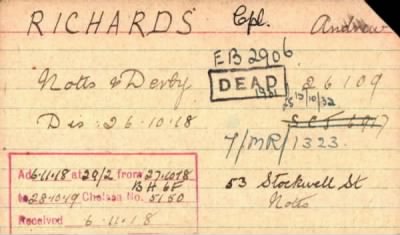 RICHARDS Cpl. Andrew
EB2906
Notts & Derby DEAD 26109
15/10/32
Dis: 26-10-18
7/MR/1323.
Ad 6-11-18 at 29/2 from 27.10.18
BH 6F
to 28-10-19 Chelsea No. 5150
Received 6-11-18
53 Stockwell St
Notts